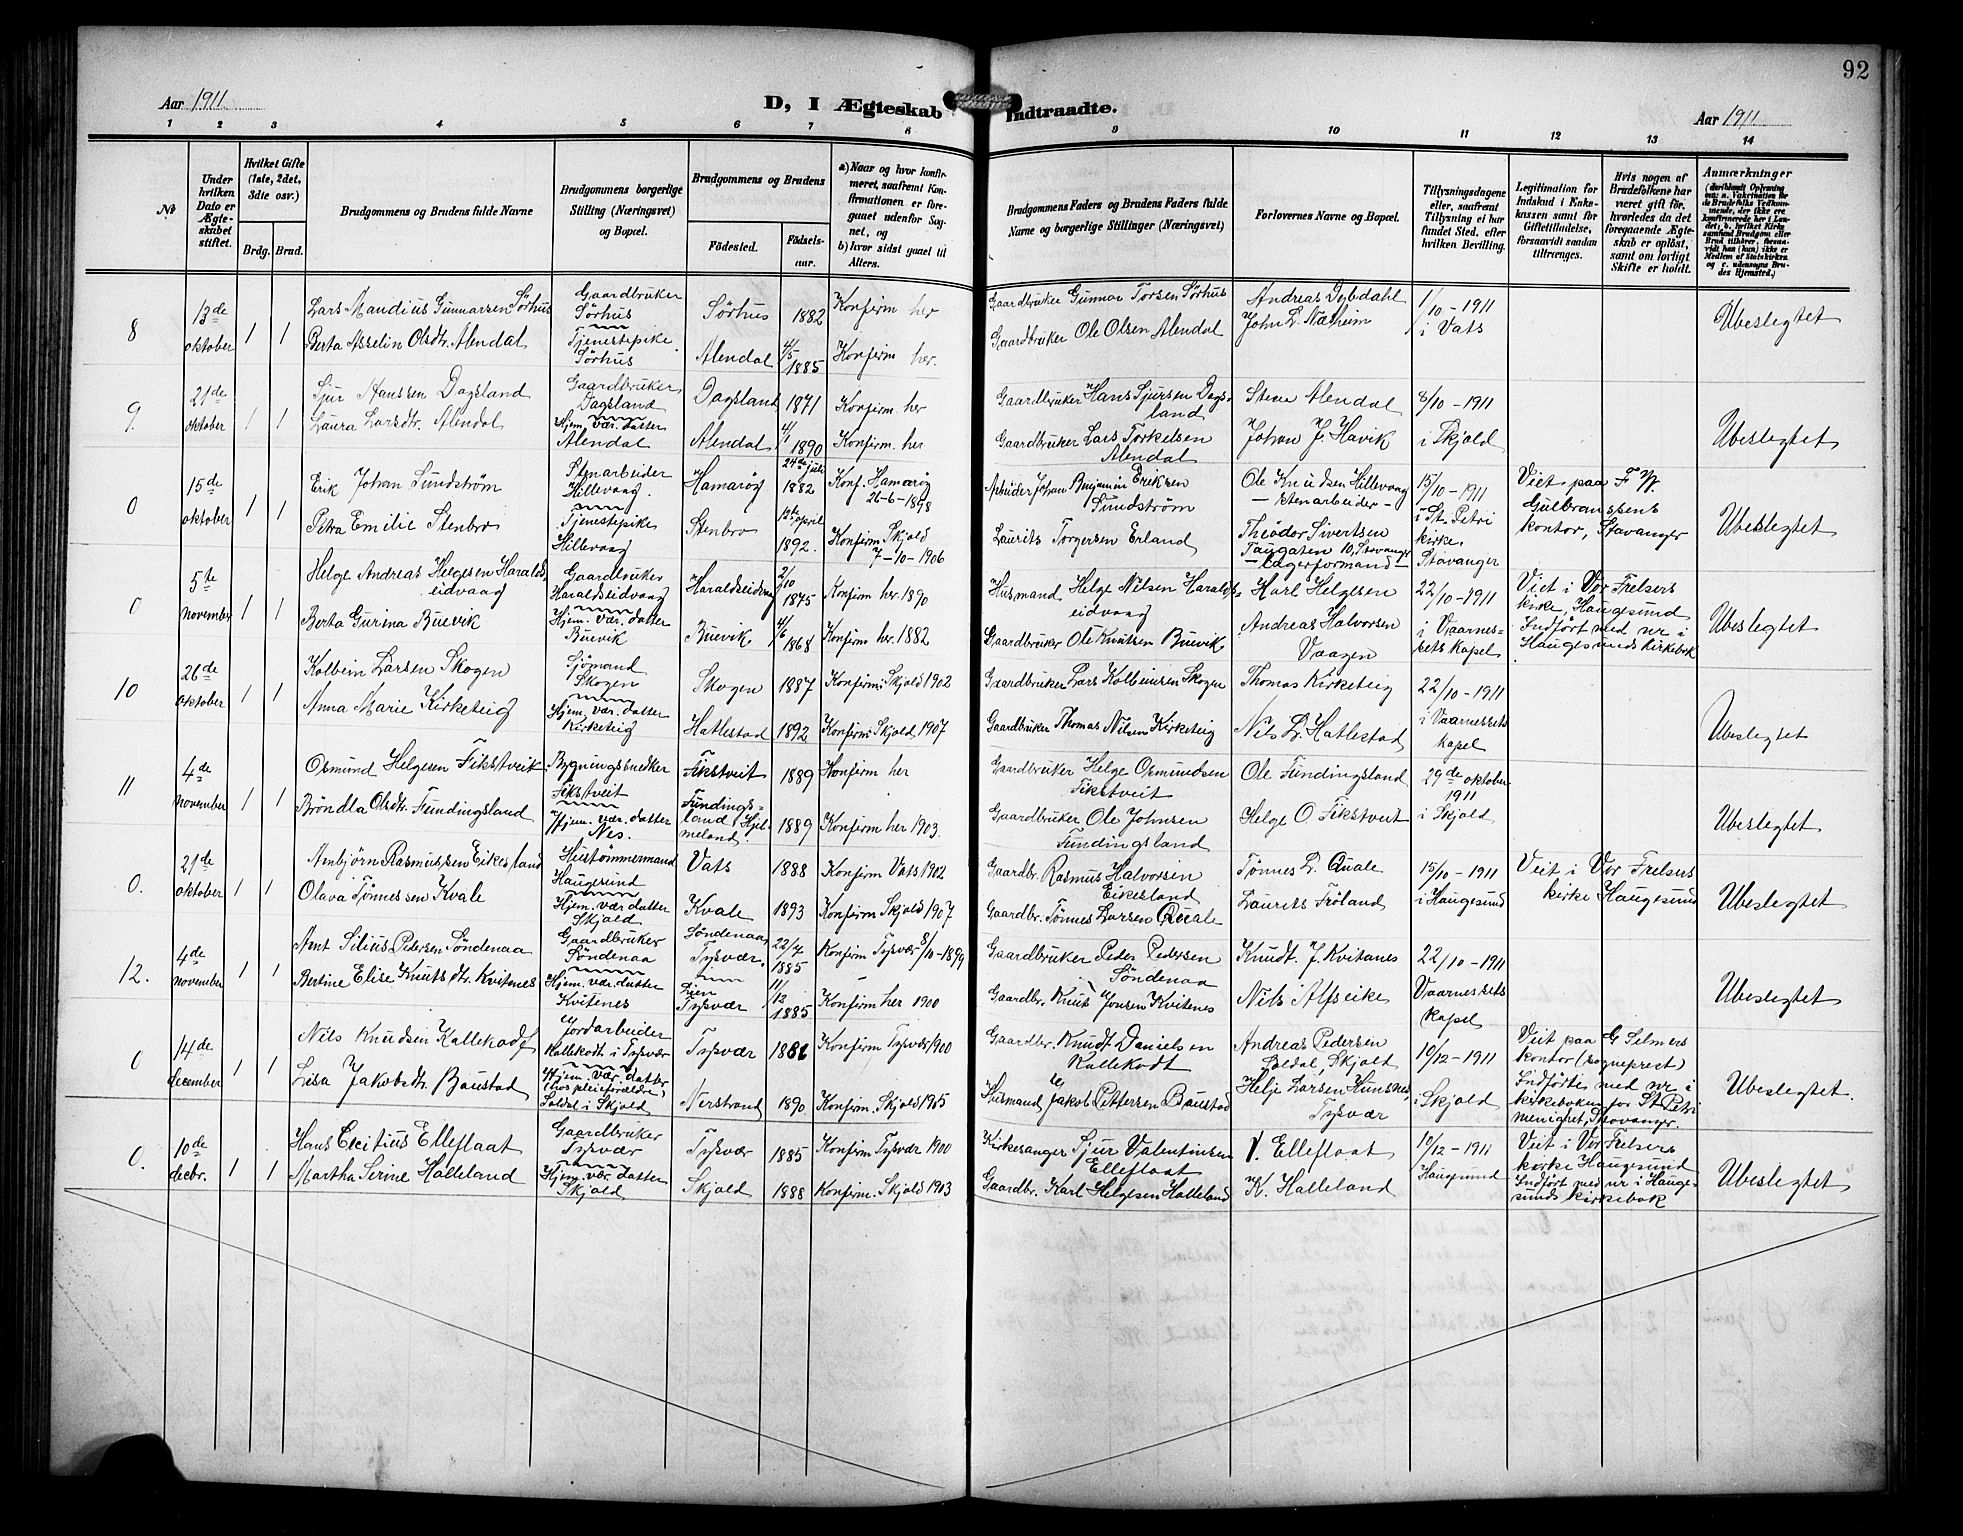 92
Aar 1911
D, I Ægteskab Indtraadte.
Aar 1911
1 2 3 4 5 6 7 8 9 10 11 12 13 14
№
Under hvilken Dato er Ægteskabet stiftet.
Hvilket Gifte (1ste, 2det, 3die osv.)
Brdg. Brud.
Brudgommens og Brudens fulde Navne
Brudgommens borgerlige Stilling (Næringsvei) og Bopæl.
Brudgommens og Brudens
Fødested. Fødselsaar.
a) Naar og hvor konfirmeret, saafremt Konfirmationen er foregaaet udenfor Sognet, og
b) hvor sidst gaaet til Alters.
Brudgommens Faders og Brudens Faders fulde Navne og borgerlige Stillinger (Næringsvei)
Forlovernes Navne og Bopæl.
Tillysningsdagene eller, saafremt Tillysning ei har fundet Sted, efter hvilken Bevilling.
Legitimation for Indskud i Enkekassen samt for Giftetilladelse, forsaavidt saadan tiltrænges.
Hvis nogen af Brudefolkene har været gift før, hvorledes da det foregaaende Ægteskab er opløst, samt om lovligt Skifte er holdt.
Anmærkninger
8 13de oktober 1 1
Lars Mandius Gunnarsen Sørhus
Gaardbruker Sørhus
Sørhus 1882 Konfirm her
Gaardbruker Gunnar Torsen Sørhus
Andreas Dybdahl
1/10-1911
Ubeslegtet
Berta Asselin Olsdtr. Alendal
Tjenestepike Sørhus
Alendal 4/5 1885 Konfirm her.
Gaardbruker Ole Olsen Alendal
i Vats
9. 21de oktober 1 1
Sjur Hanssen Dagsland
Gaardbruker Dagsland
Dagsland 1871 Konfirm. her
Gaardbruker Hans Sjursen Dagsland
Stene Alendal
8/10-1911
Laura Larsdtr. Alendal
Hjem. vær. datter Alendal
Alendal 4/1 1890 Konfirm. her
Gaardbruker Lars Torkelsen Alendal
Johan J. Havik
i Skjold
Ubeslegtet
0 15de oktober 1 1
Erik Johan Sundstrøm
Stenarbeider Hillevaag.
Hamarøy 24de juli 1882 Konf. Hamarøy 26-6-1898
Arbeider Johan Benjamin Eriksen Sundstrøm
Ole Knudsen Hillevaag - Stenarbeider -
15/10-1911
Viet paa F. W. Gulbransens kontor, Stavanger
Petra Emilie Stenbro
Tjenestepike Hillevaag
Stenbro 12te april 1892. Konfirm Skjold 7-10-1906
Laurits Torgersen Erland
Theodor Sivertsen Taugaten 10, Stavanger - Lagerformand -
i St. Petri kirke Stavanger
Ubeslegtet
0 5te november 1 1
Helge Andreas Helgesen Haraldseidvaag
Gaardbruker Haraldseidvaag
Haraldseidvaag 2/10 1875 Konfirm her. 1890
Husmand Helge Nilsen Haraldseidvaag
Karl Helgesen
22/10-1911
Viet i Vor Frelsers kirke, Haugesund Indført med nr i Haugesunds kirkebok
Berta Gurina Buevik
Hjem. vær. datter Buevik
Buevik 4/6 1868 Konfirm her. 1882
Gaardbruker Ole Knutsen Buevik
Andreas Halvorsen Vaagen
i Vaarnessets kapel
Ubeslegtet
10 26de oktober 1 1
Kolbein Larsen Skogen
Sjømand Skogen
Skogen 1887 Konfirm. Skjold 1902
Gaardbruker Lars Kolbeinsen Skogen
Thomas Kirketeig
22/10-1911
Anna Marie Kirketeig
Hjem. vær. datter Kirketeig
Hatlestad 1892 Konfirm Skjold 1907
Gaardbruker Thomas Nilsen Kirketeig
Nils L. Hatlestad
i Vaarnessets kapel
Ubeslegtet
11 4de november 1 1
Osmund Helgesen Fikstveit
Bygningssnedker Fikstveit
Fikstveit 1889 Konfirm her
Gaardbruker Helge Osmundsen Fikstveit
Ole Fundingsland
29de oktober 1911
Brøndla Olsdtr. Fundingsland
Hjem. vær. datter Nes.
Fundingsland, Hjelmeland 1889 Konfirm her 1903.
Gaardbruker Ole Johnsen Fundingsland
Helge O Fikstveit
i Skjold
Ubeslegtet
0. 21de oktober 1 1
Arnbjørn Rasmussen Eikesland
Hustømmermand Haugesund
Vats 1888 Konfirm Vats 1902
Gaardbr. Rasmus Halvorsen Eikesland
Tønnes L. Quale
15/10-1911
Viet i Vor Frelsers kirke Haugesund
Olava Tønnessen Kvale
Hjem. vær datter Skjold
Kvale 1893 Konfirm Skjold 1907
Gaardbr. Tønnes Larsen Quale
Laurits Frøland
i Haugesund
Ubeslegtet
12. 4de november 1 1
Arnt Silius Pedersen Søndenaa
Gaardbruker Søndenaa
Søndenaa, Tysvær. 22/4 1885 Konfirm Tysvær 8/10-1899
Gaardbruker Peder Pedersen Søndenaa
Knudt. J. Kvitanes
22/10-1911
Bertine Elise Knutsdtr. Kvitenes
Hjem. vær. datter Kvitenes
Lien Tysvær 11/12 1885 Konfirm her 1900
Gaardbr. Knut Jonsen Kvitenes
Nils Alfseike
Vaarnessets kapel
Ubeslegtet
0 14de december 1 1
Nils Knudsen Kallekodt
Jordarbeider Kallekodt i Tysvær
Tysvær Konfirm Tysvær 1900
Gaardbr. Knudt Danielsen Kallekodt
Andreas Pedersen Soldal, Skjold
10/12-1911
Viet paa G Selmers kontor (sogneprest) Indførtes med nr i kirkeboken for St Petri menighet, Stavanger.
Lisa Jakobsdtr. Baustad
Hjem. vær. datter (hos pleieforældre) Soldal i Skjold
Nerstrand 1890 Konfirm. Skjold 1905
Husmand Jakob Pettersen Baustad
Helje Larsen Hunsnes, Tysvær
i Skjold
Ubeslegtet.
0. 10de decbr. 1 1
Hans Cecitius Elleflaat
Gaardbruker Tysvær
Tysvær 1885 Konfirm Tysvær 1900
Kirkesanger Sjur Valentinsen Elleflaat
V. Elleflaat
10/12-1911
Viet i Vor Frelsers kirke Haugesund Indført med nr i Haugesunds kirkebok
Martha Serine Halleland
Hjem. vær. datter Skjold
Skjold 1888 Konfirm. Skjold 1903
Gaardbr. Karl Helgesen Halleland
K. Halleland
Haugesund
Ubeslegtet